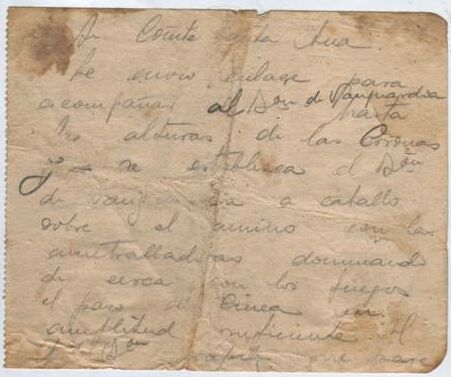 Al Comte Santa Ana.
Le envio enlace para
acompañar al Bón de Vanguardia hasta
las alturas de las Coronas
y se establezca el Bón
de vanguardia a caballo
sobre el camino con las
ametralladoras dominando
de cerca con los fuegos
el paso del Cinca en
amplitud suficiente. Al
Bón que pase